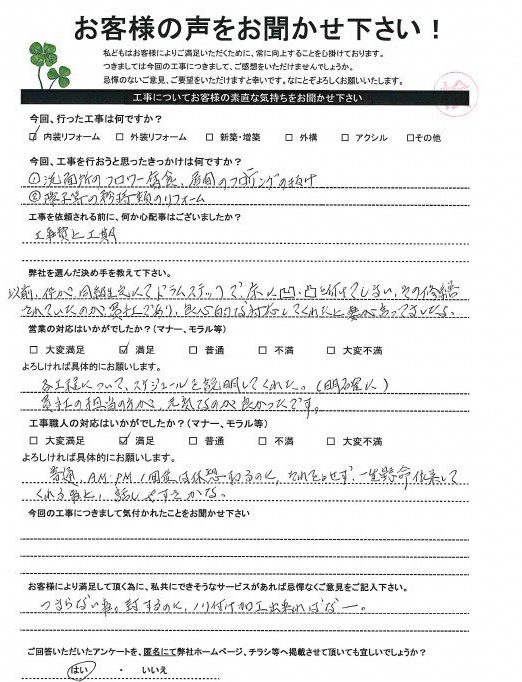 お客様の声をお聞かせ下さい！
私どもはお客様によりご満足いただくために、常に向上することを心掛けております。
つきましては今回の工事につきまして、ご感想をいただけませんでしょうか。
忌憚のないご意見、ご要望をいただけますと幸いです。なにとぞよろしくお願いいたします。
工事についてお客様の素直な気持ちをお聞かせ下さい
今回、行った工事は何ですか？
☑ 内装リフォーム □ 外装リフォーム □ 新築・増築 □ 外構 □ アクシル □その他
今回、工事を行おうと思ったきっかけは何ですか？
① 洗面所のフロワー腐食、居間のフローリングの抜け
② 障子等の リフォーム
工事を依頼される前に、何か心配事はございましたか？
工事費と工期
弊社を選んだ決め手を教えて下さい。
以前、 ドラムステックで、床に凹・凸を付けてしまい、その修繕
されていたのが 良心的な対応してくれたと
営業の対応はいかがでしたか？（マナー、モラル等）
□ 大変満足 ☑ 満足 □ 普通 □ 不満 □ 大変不満
よろしければ具体的にお願いします。
各工程について、スケジュールを説明してくれた。（明確に）
担当の方が、元気なのが良かったです。
工事職人の対応はいかがでしたか？（マナー、モラル等）
□ 大変満足 ☑ 満足 □ 普通 □ 不満 □ 大変不満
よろしければ具体的にお願いします。
普通、AM・PM 1回位は休憩 のに、それをとせず、一生懸命作業して
くれる事と、話しやすさかな。
今回の工事につきまして気付かれたことをお聞かせ下さい
お客様により満足して頂く為に、私共にできそうなサービスがあれば忌憚なくご意見をご記入下さい。
つまらない事。封するのに、ノリ付け加工出来ればなー。
ご回答いただいたアンケートを、匿名にて弊社ホームページ、チラシ等へ掲載させて頂いても宜しいでしょうか？
はい ・ いいえ